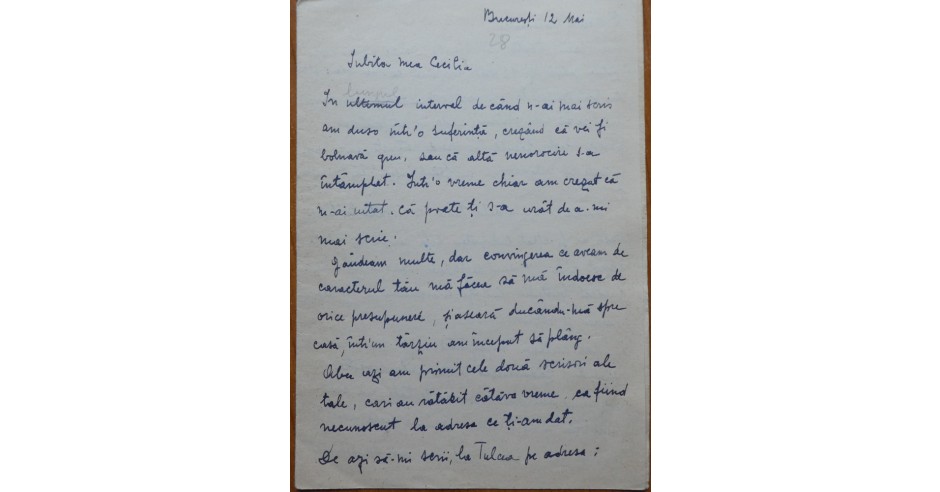 București 12 Mai
28
Iubita mea Cecilia
timpul
In ultimul interval de când n-ai mai scris
am dus o într'o suferință, crezând că vei fi
bolnavă greu, sau că altă nenorocire s-a
întâmplat. Într'o vreme chiar am crezut că
m-ai uitat. Că poate ți s-a urât de a-mi
mai scrie.
Gândeam multe, dar convingerea ce aveam de
caracterul tău mă făcea să mă îndoesc de
orice presupunere, și aseară ducându-mă spre
casă, într'un târziu am început să plâng.
Abea azi am primit cele două scrisori ale
tale, cari au rătăcit câtăva vreme ca fiind
necunoscut la adresa ce ți-am dat.
De azi să-mi scrii, la Tulcea pe adresa: